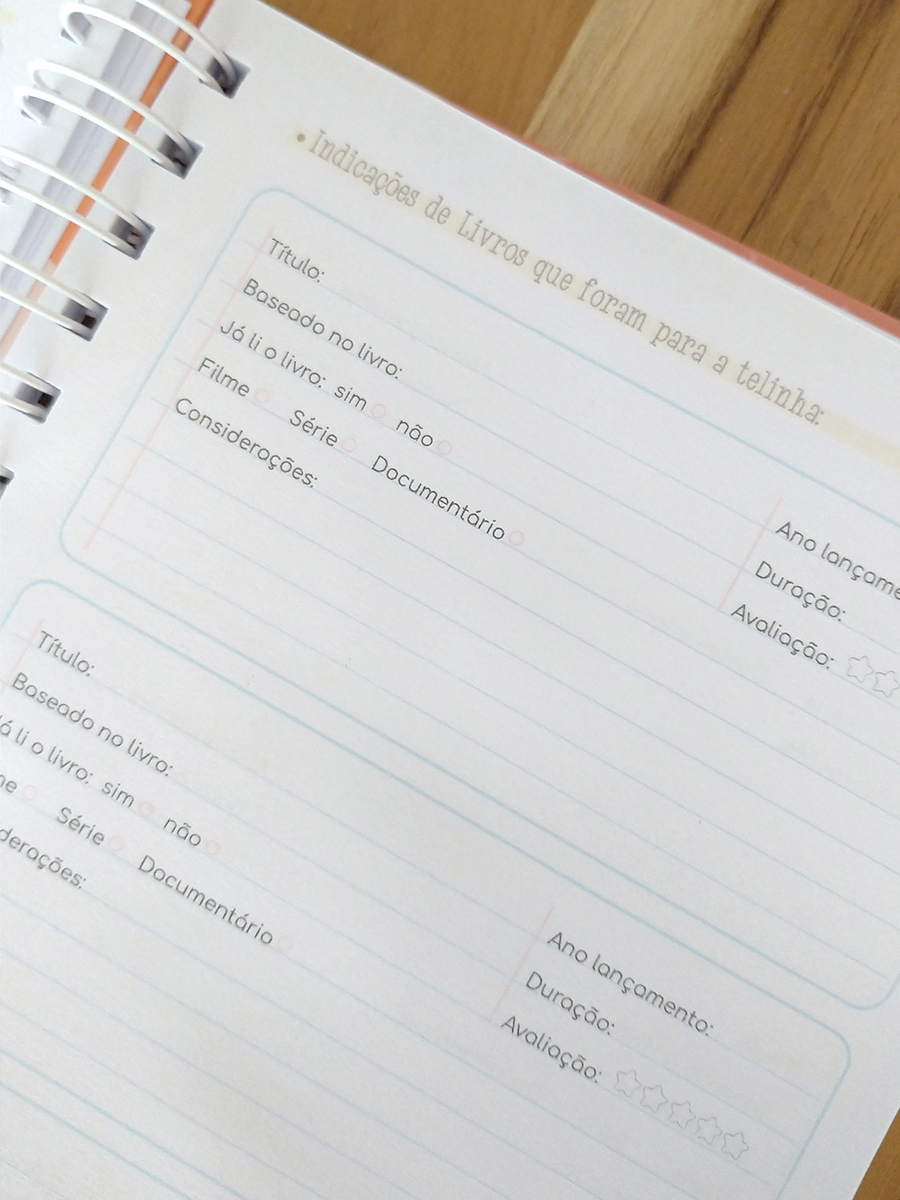 • Indicações de Livros que foram para a telinha:
Título:
Baseado no livro:
Já li o livro: sim não
Filme Série Documentário
Considerações:
Ano lançame
Duração:
Avaliação:
Título:
Baseado no livro:
á li o livro: sim não
me Série Documentário
derações:
Ano lançamento:
Duração:
Avaliação: